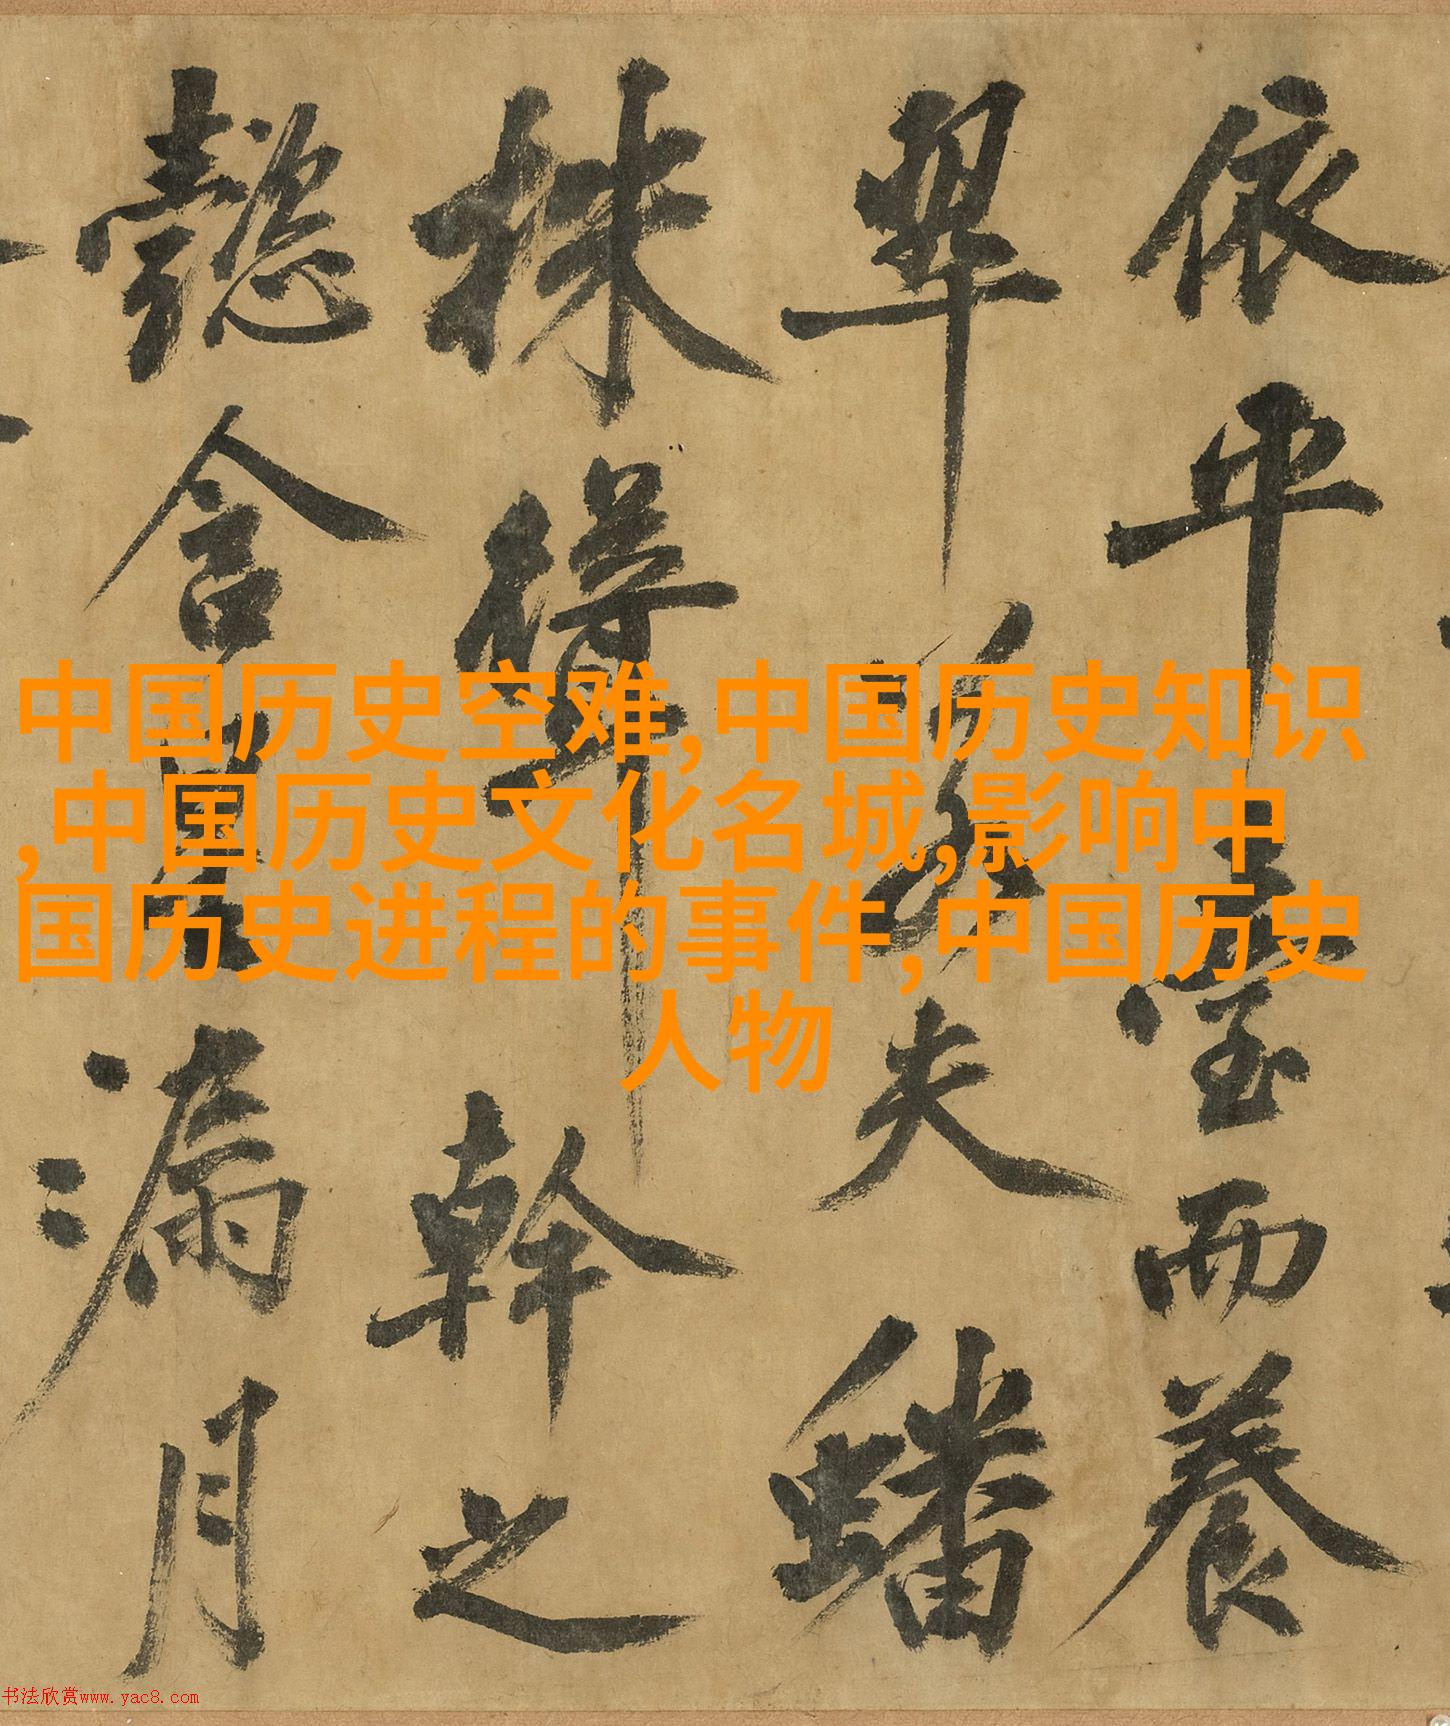 依平臺而養
翠若夫蟠
株聳幹之
懿含星漏月
中国历史空难,中国历史知识
,中国历史文化名城,影响中
国历史进程的事件,中国历史
人物
书法欣赏www.yac8.com